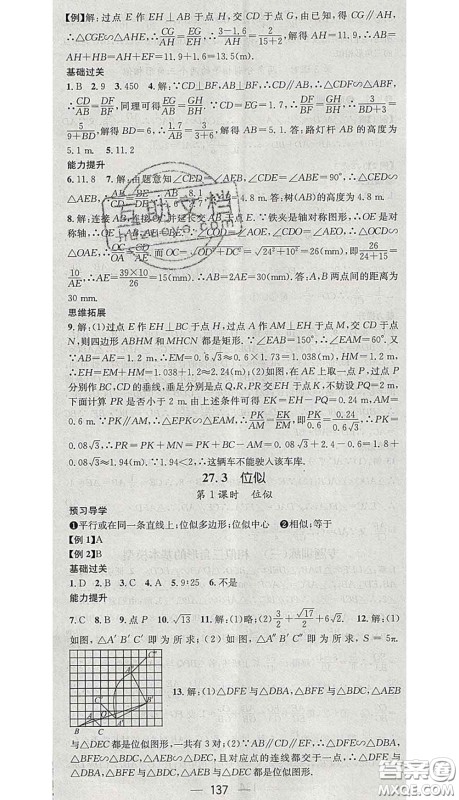 【例】解:过点 E 作 EH⊥AB 于点 H,交 CD 于点 G,由已知,得 CG∥AH,
∴△CGE∽△AHE,∴CG/AH=GE/HE,即 (3-1.6)/AH=2/(15+2),解得 AH=11.9,∴AB=
AH+HB=AH+EF=11.9+1.6=13.5(m).
基础过关
1.B 2.9 3.450 4.解:∵CD⊥BF,AB⊥BF,∴CD∥AB,∴△CDF∽△ABF,
∴CD/AB=DF/BF,同理可得EF/AB=EG/BG,∴DF/BF=GH/BH,∴3/(BD+3)=
5/(9+BD),解得 BD=6,∴1.7/AB=3/(6+3),解得 AB=5.1.答:路灯杆 AB 的高度为
5.1 m. 5.11.2
能力提升
6.11.8 7.解:由题意知∠CED=∠AEB,∠CDE=∠ABE=90°,∴△CED∽
4.8 m.答:树(AB)的高度为 4.8 m.
8.解:连接 AB,连接 并延长交 AB 于点 E.∵铁夹是轴对称图形,∴OE 是对
称轴,∴OE⊥AB,AE=BE.∵∠COD=∠AOE,∠CDO=∠AEO,∴△OCD∽
△OAE,∴OC/OA=CD/AE.而 OC=√(OD²+CD²)=√(24²+10²)=26(mm),即26/(24+15)=
10/AE,∴AE=39×10/26=15(mm),∴AB=2AE=30(mm).答:A,B 两点间的距离为
30 mm.
思维拓展
9.解:(1)过点 E 作 EH⊥BC 于点 H,过点 A 作 AM⊥EH 于点 M,交 CD 于点
N,则四边形 ABHM 和 MHCN 都是矩形.∵∠EAB=150°,∴∠EAM=60°.又
∵AB=AE=1.2 m,∴EM=0.6√3≈0.6×1.73=1.038(m),MH=AB=1.2 m,
∴EH=EM+MH=1.038+1.2≈2.24(m).(2)如图,在 AE 上取一点 P,过点 P
分别作 BC,CD 的垂线,垂足分别是点 Q,R,PR 交 EH 于点 K,不妨设 PQ=2 m,
下面计算 PR 是否小于 2 m.由上述条件可得 EK=EH-PQ=0.24 m,AM=
0.6 m.∵PK∥AM,∴△EPK∽△EAM,∴PK/AM=EK/EM,即PK/0.6=0.24/0.6√3,∴PK=
0.08√3,∴PR=PK+MN=PK+AN-AM=0.08√3+2.4-0.6=1.8+
0.08√3≈1.94(m).∵1.94<2,∴这辆车不能驶入该车库.
27.3 位似
第 1 课时 位似
预习导学
❶平行或在同一条直线上;位似多边形;位似中心 ❷相似;等于
【例 1】A
【例 2】B
基础过关
1.D 2.B 3.C 4.A 5.9∶25 6.不是
能力提升
7.C 8.B 9.点 P 10.√13 11.解:(1)略;(2)3/2+√17/2+6√2. 12.解:(1)
如图,△A′B′C′即为所求;(2)如图,△A″B″C″即为所求,S=5π.
13.解:(1)△DFE 与△DBA,△BFE 与△BDC,△AEB
与△DEC 都是位似图形,一共有 3 对;(2)∵AB∥CD∥EF,∴△DFE∽△DBA,
△BFE∽△BDC,△AEB∽△DEC,且对应点的连线都交于一点,∴△DFE 与
△DBA,△BFE 与△BDC,△AEB 与△DEC 都是位似图形.
137
答案圈
MXQE.COM